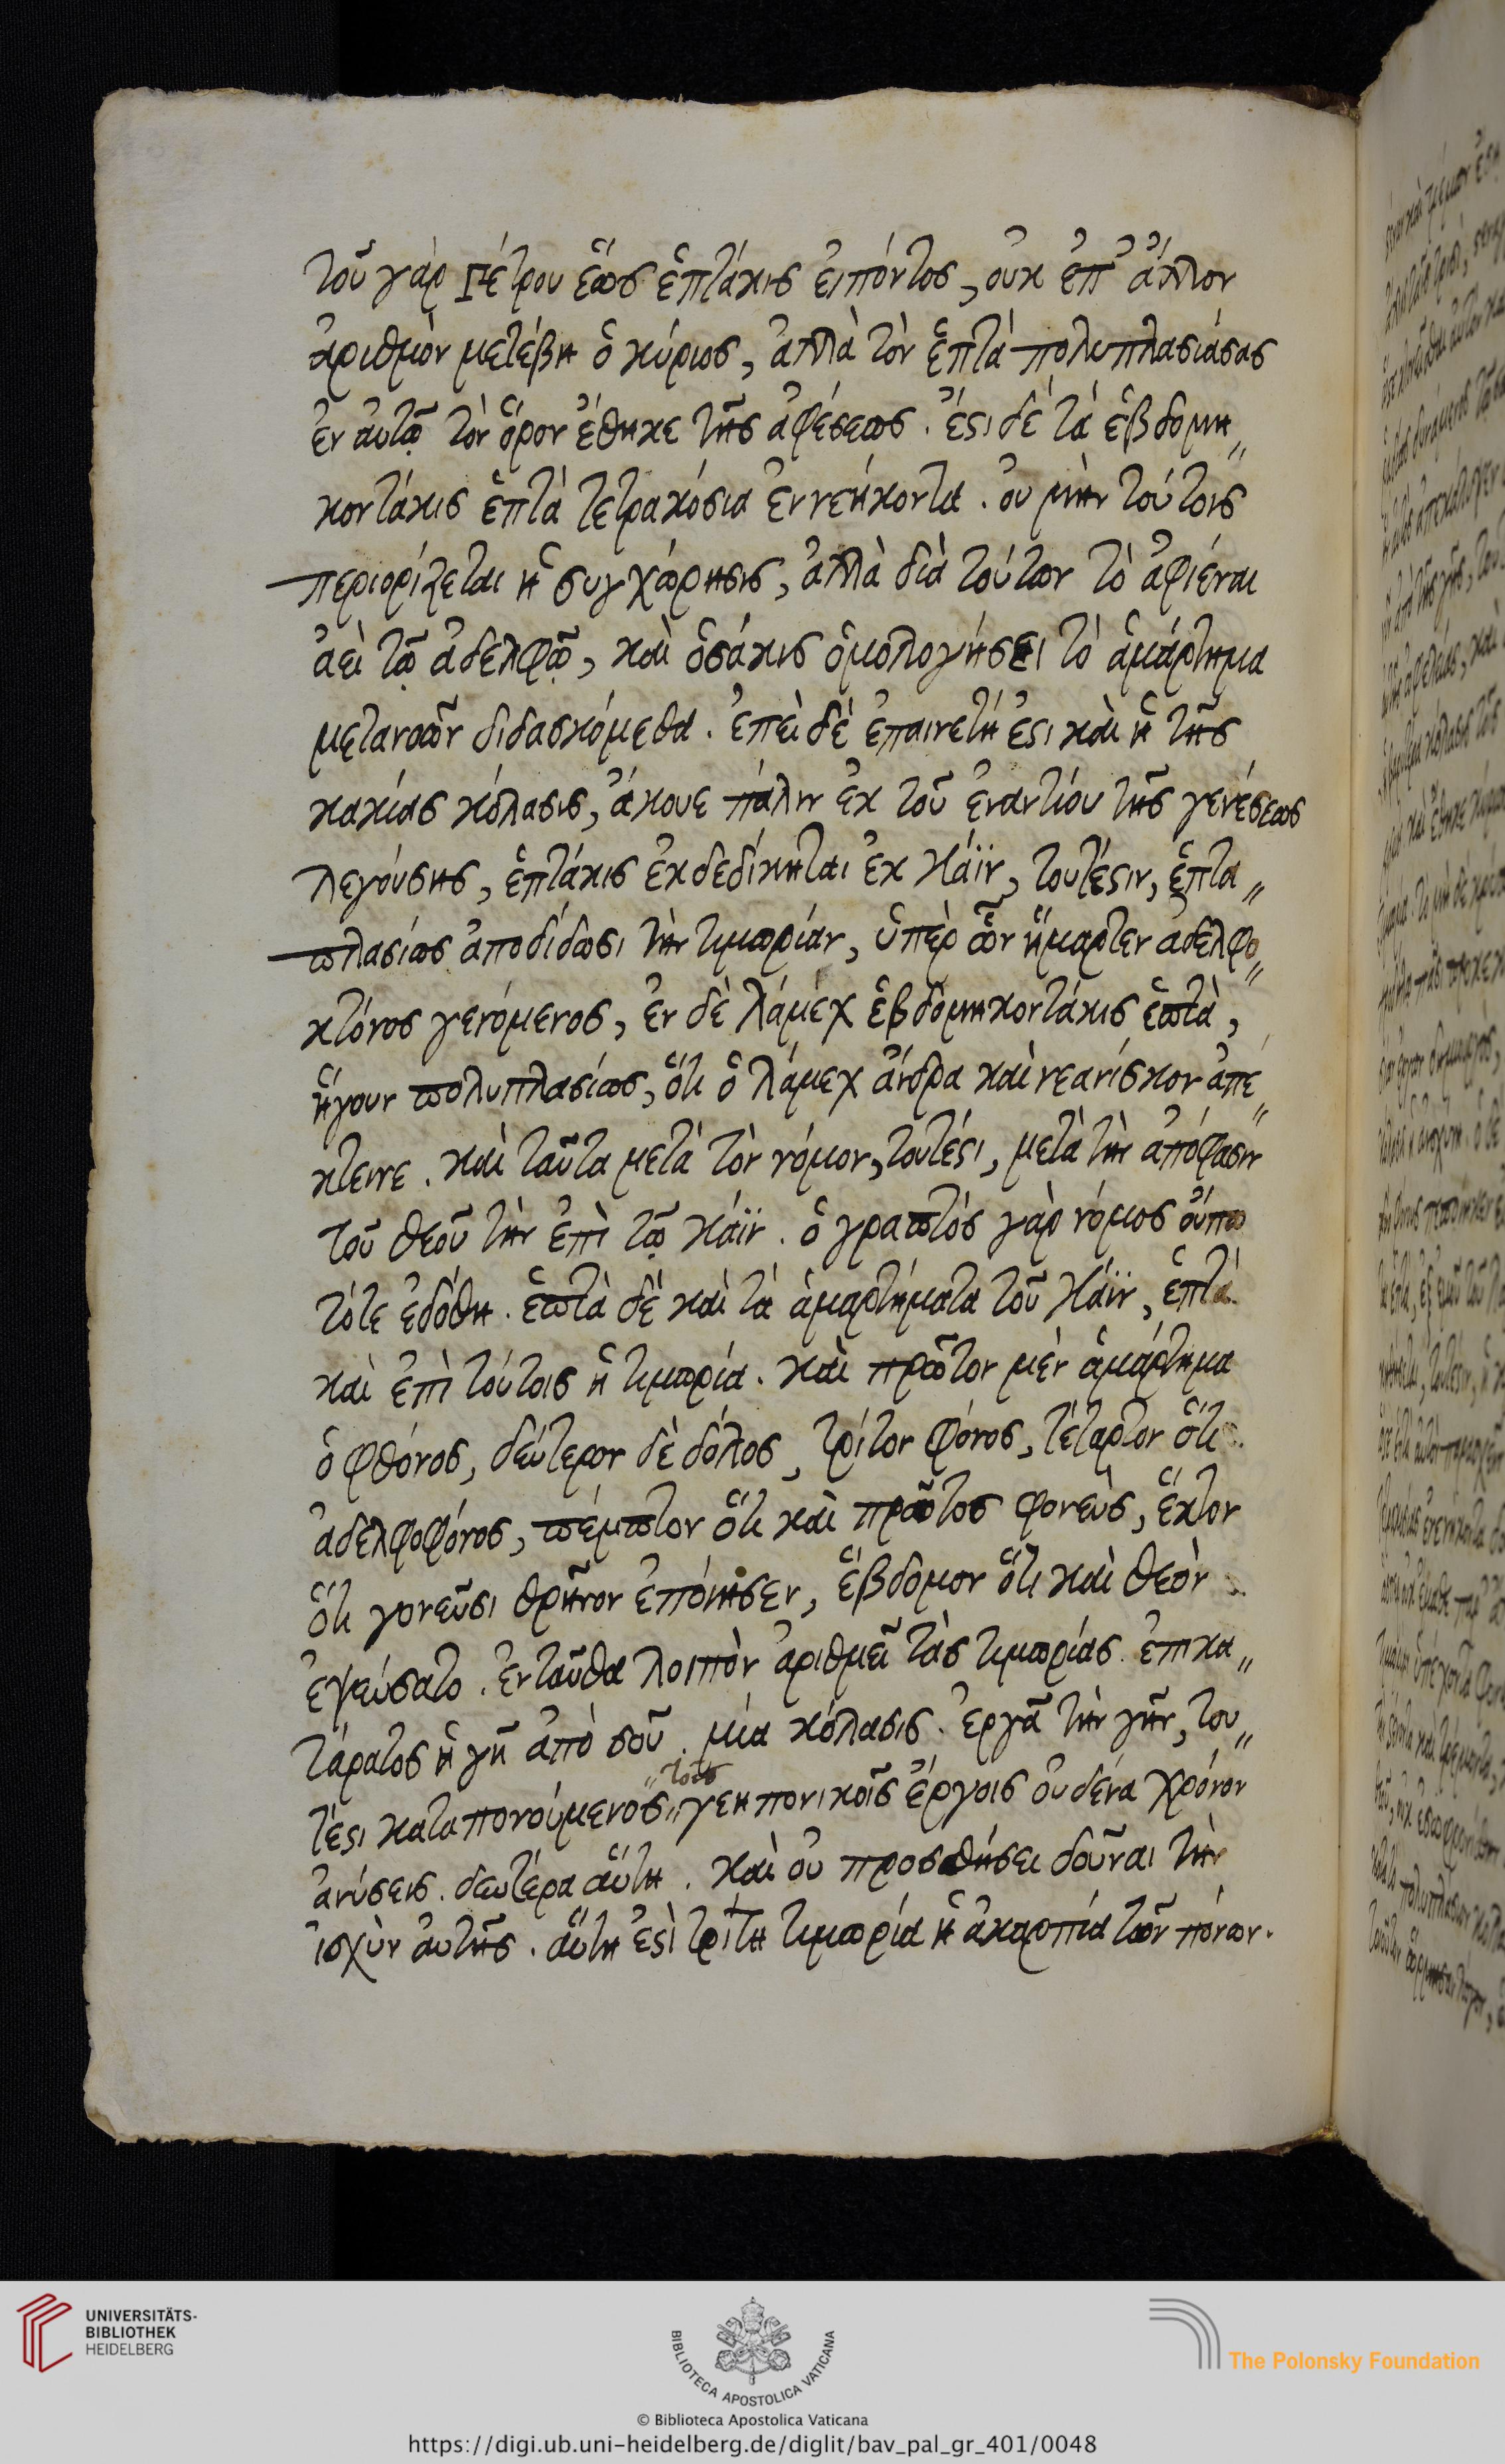 τοῦ γὰρ Πέτρου ἕως ἑπτάκις εἰπόντος, οὐκ ἐπ' ἄλλον
ἀριθμὸν μετέβη ὁ κύριος, ἀλλὰ τὸν ἑπτὰ πολυπλασιάσας
ἐν αὐτῷ τὸν ὅρον ἔθηκε τῆς ἀφέσεως. ἔςι δὲ τὰ ἑβδομη„
κοντάκις ἑπτὰ τετρακόσια ἐννεήκοντα. οὐ μὴν τούτοις
περιορίζεται ἡ συγχώρησις, ἀλλὰ διὰ τούτων τὸ ἀφιέναι
ἀεὶ τῷ ἀδελφῷ, καὶ ὁσάκις ὁμολογήσει τὸ ἁμάρτημα
μετανοῶν διδασκόμεθα. ἐπεὶ δὲ ἐπαινετή ἐςι καὶ ἡ τῆς
κακίας κόλασις, ἄκουε πάλιν ἐκ τοῦ ἐναντίου τῆς γενέσεως
λεγούσης, ἑπτάκις ἐκδεδίκηται ἐκ Κάϊν, τουτέςιν, ἑπτα„
πλασίως ἀποδίδωσι τὴν τιμωρίαν, ὑπὲρ ὧν ἥμαρτεν ἀδελφο„
κτόνος γενόμενος, ἐν δὲ λάμεχ ἑβδομηκοντάκις ἑπτὰ,
ἤγουν πολυπλασίως, ὅτι ὁ λάμεχ ἄνδρα καὶ νεανίσκον ἀπέ„
κτεινε. καὶ ταῦτα μετὰ τὸν νόμον, τουτέςι, μετὰ τὴν ἀπόφασιν
τοῦ θεοῦ τὴν ἐπὶ τῷ Κάϊν. ὁ γραπτός γὰρ νόμος οὔπω
τότε ἐδόθη. ἑπτὰ δὲ καὶ τὰ ἁμαρτήματα τοῦ Κάϊν, ἑπτὰ
καὶ ἐπὶ τούτοις ἡ τιμωρία. καὶ πρῶτον μὲν ἁμάρτημα
ὁ φθόνος, δεύτερον δὲ δόλος, τρίτον φόνος, τέταρτον ὅτι
ἀδελφοφόνος, πέμπτον ὅτι καὶ πρῶτος φονεὺς, ἕκτον
ὅτι γονεῦσι θρῆνον ἐποίησεν, ἕβδομον ὅτι καὶ θεὸν
ἐψεύσατο. ἐνταῦθα λοιπὸν ἀριθμεῖ τὰς τιμωρίας. ἐπικα„
τάρατος ἡ γῆ ἀπὸ σοῦ. μία κόλασις. ἐργᾷ τὴν γῆν, του„
τέςι καταπονούμενος τοῖς γεηπονικοῖς ἔργοις οὐδένα χρόνον
ἀνύσεις. δευτέρα αὕτη. καὶ οὐ προσθήσει δοῦναι τὴν
ἰσχὺν αὐτῆς. αὕτη ἐςὶ τρίτη τιμωρία ἡ ἀκαρπία τῶν πόνων.
UNIVERSITÄTS-
BIBLIOTHEK
HEIDELBERG
BIBLIOTECA APOSTOLICA VATICANA
The Polonsky Foundation
© Biblioteca Apostolica Vaticana
https://digi.ub.uni-heidelberg.de/diglit/bav_pal_gr_401/0048